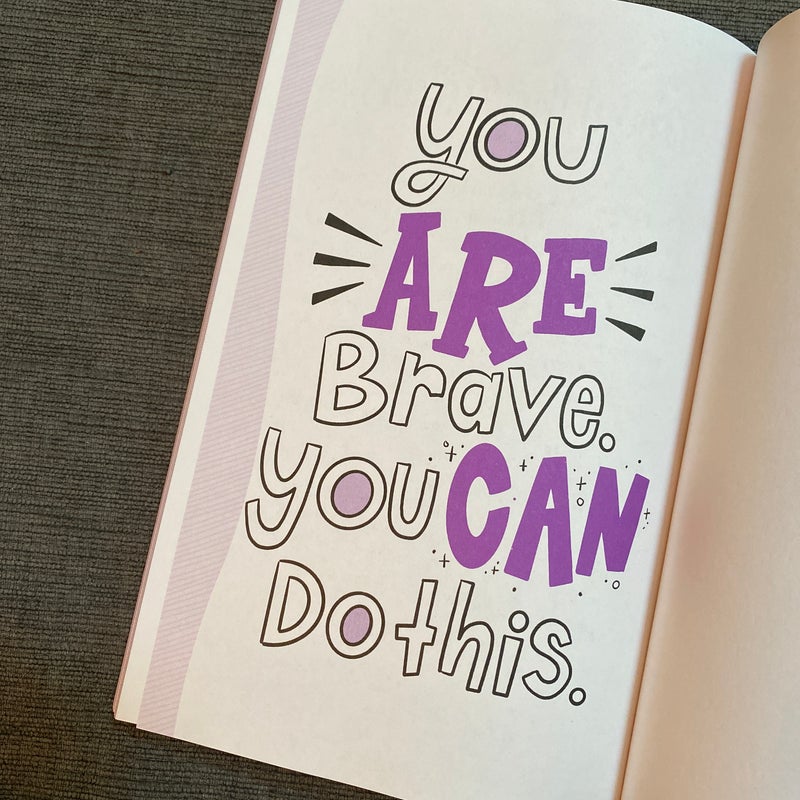 you
ARE
Brave.
you CAN
Do this.